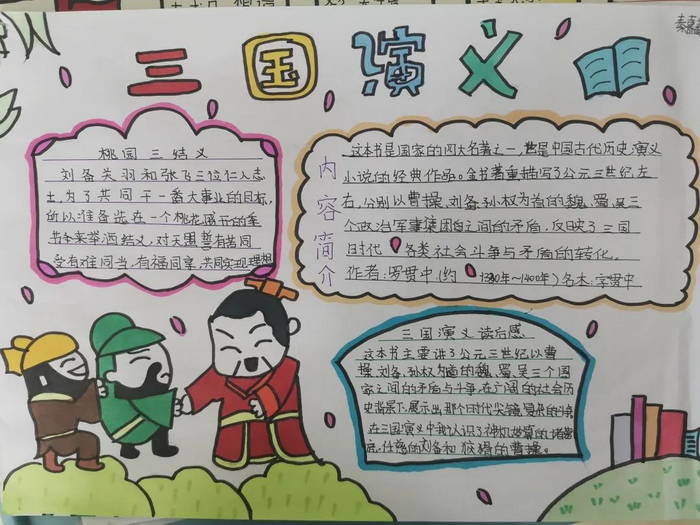 三国演义
桃园三结义
刘备关羽和张飞三位仁人志
士,为了共同干一番大事业的目标,
所以准备选在一个桃花盛开的季
节来举洒结义,对天盟誓有苦同
受有难同当,有福同享,共同实现理想
内容简介
这本书是国家的四大名著之一,也是中国古代历史演义
小说的经典作品。全书着重描写了公元三世纪左
右,分别以曹操,刘备,孙权为首的魏、蜀、吴三
个政治军事集团之间的矛盾,反映了三国
时代各类社会斗争与矛盾的转化。
作者:罗贯中(约1330年~1400年)名本:字贯中
三国演义读后感
这本书主要讲了公元三世纪以曹
操,刘备,孙权为首的魏、蜀、吴三个国
家之间的矛盾与斗争,在广阔的社会历
史背景下,展示出那个时代尖锐
在三国演义中我认识了神机妙算的诸葛
亮,任意的刘备和狡猾的曹操。